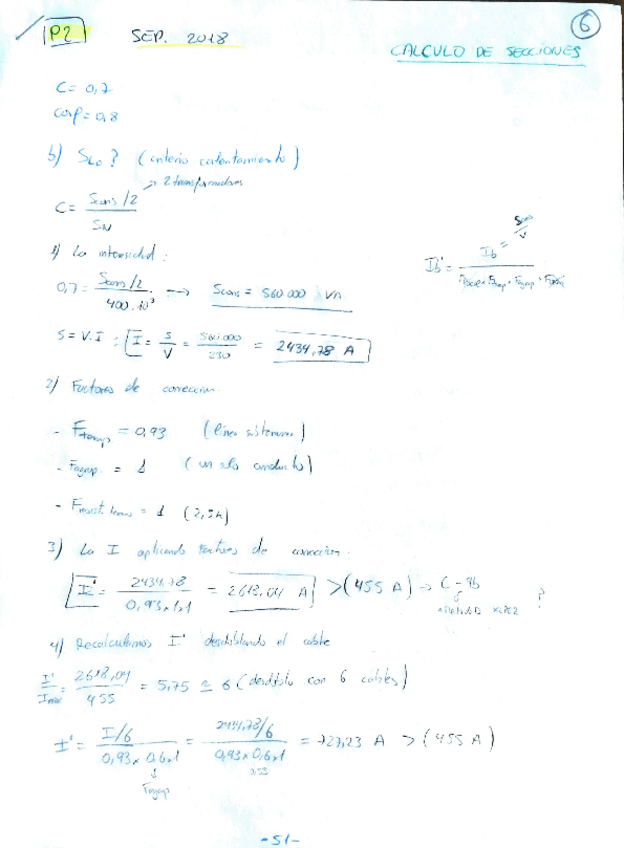 P2 SEP. 2018
6
CALCULO DE SECCIONES
C = 0,7
cosφ = 0,8
b) (criterio calentamiento)
→ 2 transformadores
C = Scons /2 / SN
1) La intensidad:
0,7 = Scons/2 / 400·10³ → Scons = 560 000 VA
S = V·I ; I = S / V = 560.000 / 230 = 2434,78 A
Ib' = Ib /
2) Factores de correccion
- Ftemp = 0,93
- Fagrup. = 1 (un solo conducto)
- = 1 (2,5
3) La I aplicando factores de correccion.
I' = 2434,78 / 0,93x1x1 = 2618,04 A > (455 A) →
?
4) Recalculamos I' desdoblando el cable
I' / Imax = 2618,04 / 455 = 5,75 ≃ 6 (desdoblo con 6 cables)
I' = I/6 / 0,93 x 0,6x1 = 2434,78/6 / 0,93x0,6x1 = 727,23 A > (455 A)
Fagrup
-51-